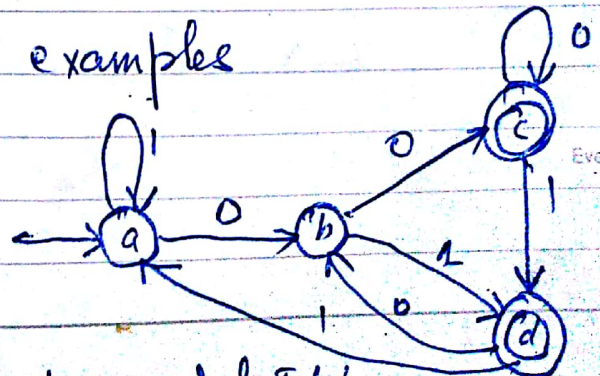 examples
0
1
c
0
Eve
a
0
b
1
1
0
1
d